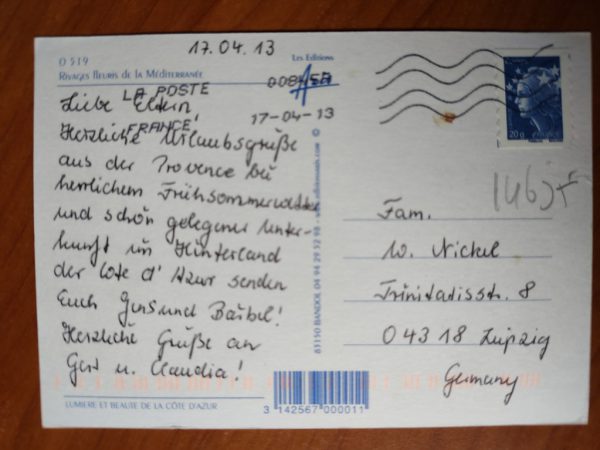 17.04.13
O 519
RIVAGES FLEURIS DE LA MÉDITERRANÉE
Les Editions
LA POSTE
17-04-13
FRANCE
Liebe Eltern!
Herzliche Urlaubsgrüße
aus der Provence bei
herrlichem Frühsommerwetter
und schön gelegener Unter-
kunft im Hinterland
der Cote d'Azur senden
Euch Jens und Bärbel!
Herzliche Grüße an
Gert u. Claudia!
LUMIERE ET BEAUTE DE LA CÔTE D'AZUR
83150 BANDOL 04 94 29 52 98
3 142567 000011
20g
FRANCE
Fam.
W. Nickel
Trinitatisstr. 8
04318 Leipzig
Germany